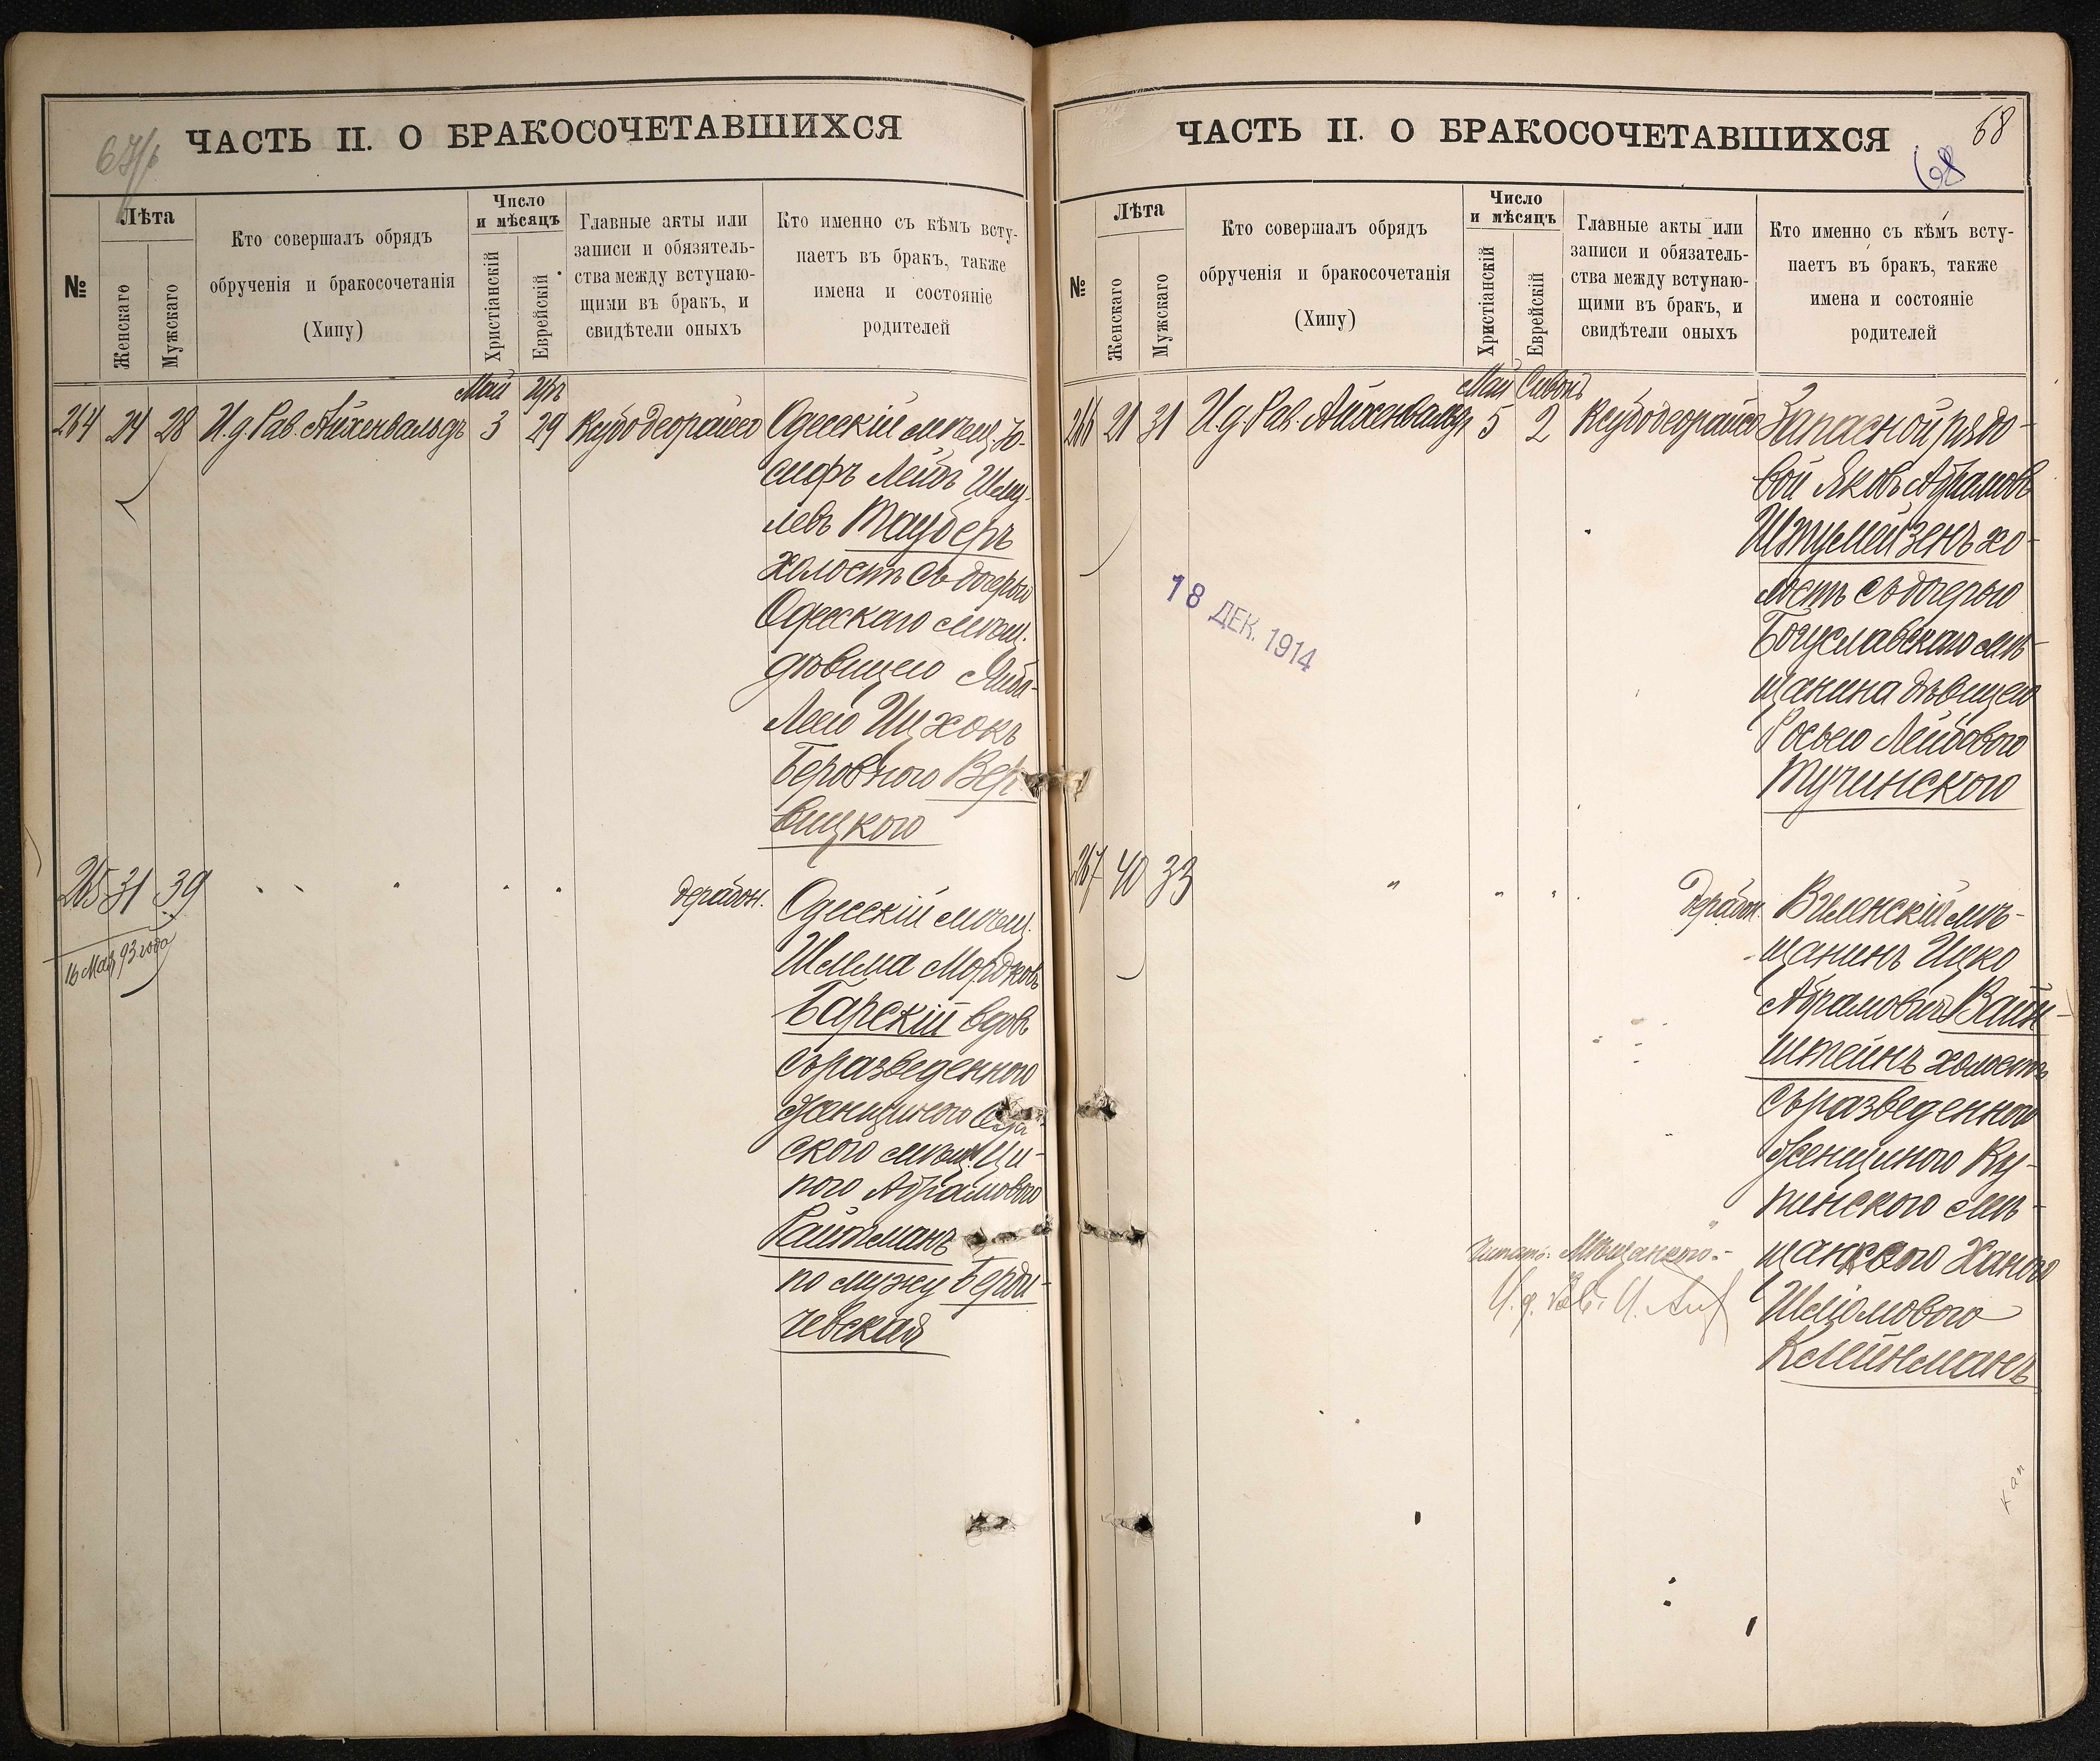 67/б
ЧАСТЬ II. О БРАКОСОЧЕТАВШИХСЯ
№
Лѣта
Женскаго
Мужскаго
Кто совершалъ обрядъ
обрученія и бракосочетанія
(Хипу)
Число
и мѣсяцъ
Христіанскій
Еврейскій
Главные акты или
записи и обязатель-
ства между вступаю-
щими въ бракъ, и
свидѣтели оныхъ
Кто именно съ кѣмъ всту-
паетъ въ бракъ, также
имена и состояніе
родителей
Май Иръ
264 24 28 И.д. Рав. Айхенвальдъ 3 29 Ксубо деорайсо Одесскій мѣщ. Іо-
сифъ Лейбъ Шму-
левъ Тауберъ
холостъ съ дочерью
Одесскаго мѣщ.
дѣвицею
Леею Ицхокъ
Беровною Вер-
вицкою
265 31 39 дерабон. Одесскій мѣщ.
16 Мая 93 года
Шлема Мордковъ
Барскій вдов.
съ разведенною
женщиною
скою мѣщ. Ци-
пою Абрамовою
Райтманъ
по мужу Берди-
чевская
68
68
ЧАСТЬ II. О БРАКОСОЧЕТАВШИХСЯ
№
Лѣта
Женскаго
Мужскаго
Кто совершалъ обрядъ
обрученія и бракосочетанія
(Хипу)
Число
и мѣсяцъ
Христіанскій
Еврейскій
Главные акты или
записи и обязатель-
ства между вступаю-
щими въ бракъ, и
свидѣтели оныхъ
Кто именно съ кѣмъ всту-
паетъ въ бракъ, также
имена и состояніе
родителей
Май Сивонъ
266 21 31 И.д. Рав. Айхенвальдъ 5 2 Ксубо деорайсо Запасной рядо-
вой Яковъ Абрамовъ
Штульмейзенъ хо-
лостъ съ дочерью
Богуславскаго мѣ-
щанина дѣвицею
Росею Лейбовою
Тучинскою
18 ДЕК. 1914
267 40 33 " " " дерабон. Виленскій мѣ-
щанинъ Ицко
Абрамовичъ Вайн-
штейнъ холостъ
съ разведенною
женщиною Ку-
тенскою мѣ-
щанскою Ханою
Шліомовою
Клейнманъ
Читать: Мѣщанкою.-
И. д. Рав.